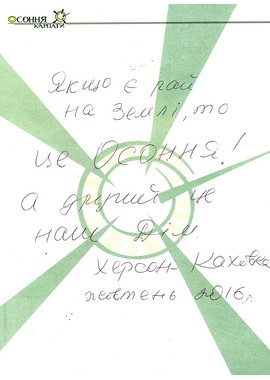 ОСОННЯ
КАРПАТИ
Якщо є рай
на Землі, то
це Осоння!
а другий це
наш Дім
Херсон-Каховка
жовтень 2016 р.